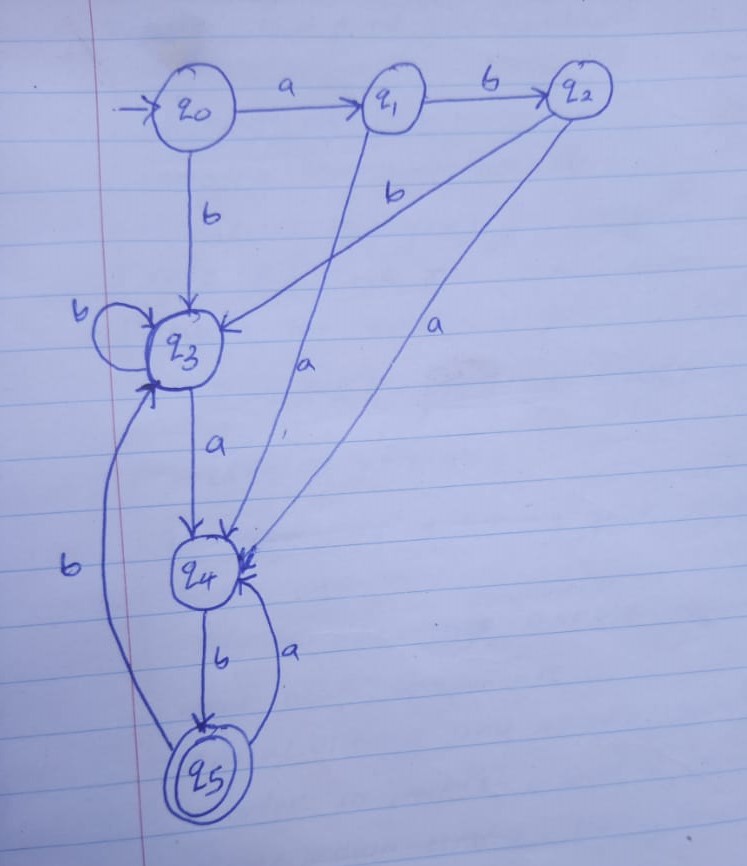 q0 a q1 b q2
b
b
b q3
a
a
a
q4
b
b a
q5